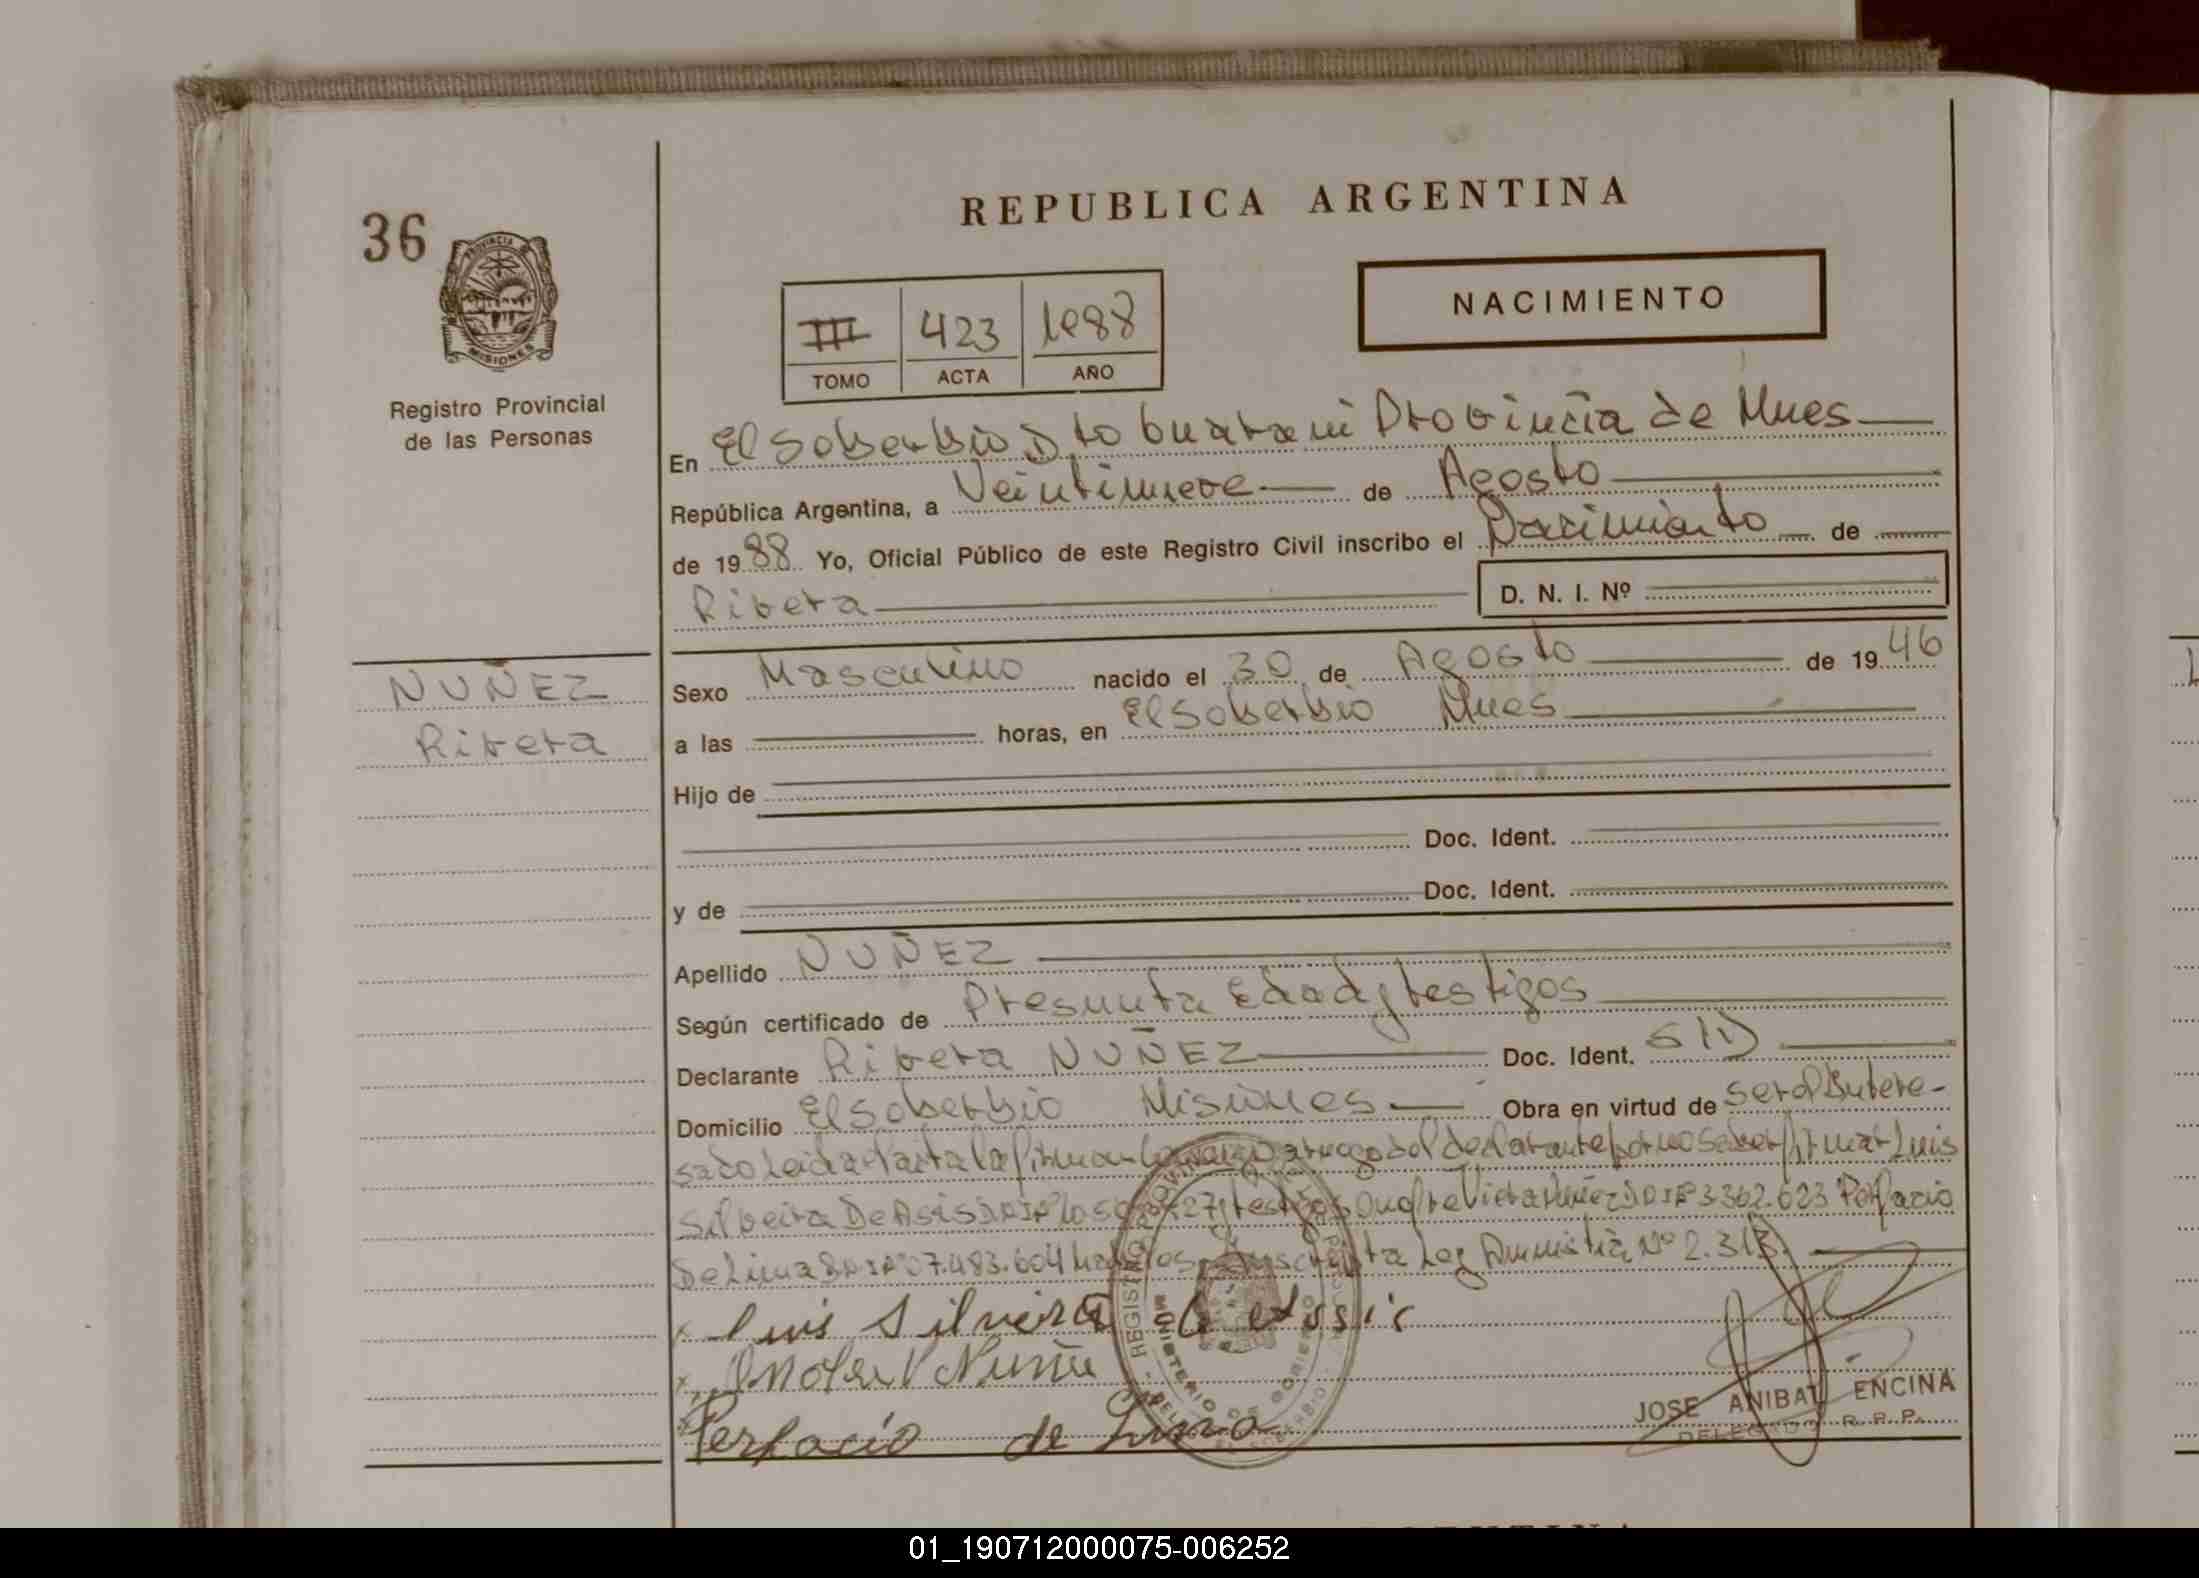 REPUBLICA ARGENTINA
36
PROVINCIA
MISIONES
Registro Provincial
de las Personas
NACIMIENTO
III 423 1988
TOMO ACTA AÑO
En El Soberbio Dto Guarani Provincia de Mnes
República Argentina, a Veintinueve de Agosto
de 1988 Yo, Oficial Público de este Registro Civil inscribo el Nacimiento de
Rivera D. N. I. Nº
NUÑEZ
Rivera
Sexo Masculino nacido el 30 de Agosto de 1946
a las horas, en El Soberbio Mnes
Hijo de
Doc. Ident.
y de Doc. Ident.
Apellido NUÑEZ
Según certificado de Presunta Edad y testigos
Declarante Rivera NUÑEZ Doc. Ident. S/D
Domicilio El Soberbio Misiones Obra en virtud de ser el Intere-
sado Leida el acta la firman a ruego del declarante por no Saber firmar Luis
Silveira De Asis testigos Vieira Nuñez 3.362.623 Perfacio
De Lima 07.483.604 Ley Amnistia Nº 2.313.
x Luis Silveira de Assis
x Nuñez
Perfacio de Lima
REGISTRO
MINISTERIO DE GOBIERNO
SOBERBIO
JOSE ANIBAL ENCINA
DELEGADO R. P. P.
01_190712000075-006252